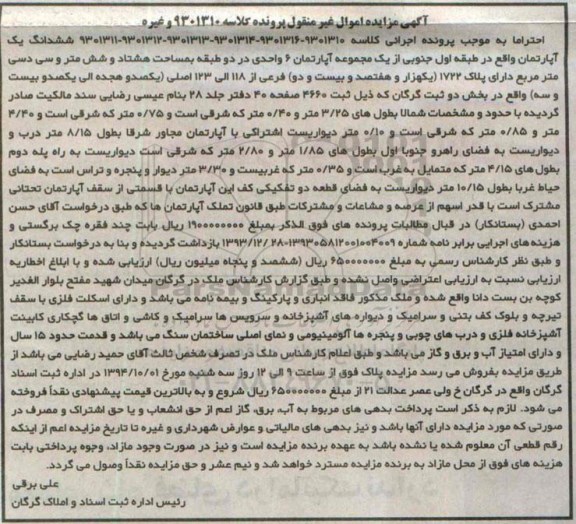 آگهی مزایده اموال غیر منقول پرونده کلاسه ۹۳۰۱۳۱۰ و غیره
احتراما به موجب پرونده اجرائی کلاسه ۹۳۰۱۳۱۰-۹۳۰۱۳۱۶-۹۳۰۱۳۱۴-۹۳۰۱۳۱۳-۹۳۰۱۳۱۲-۹۳۰۱۳۱۱ ششدانگ یک
آپارتمان واقع در طبقه اول جنوبی از یک مجموعه آپارتمان ۶ واحدی در دو طبقه بمساحت هشتاد و شش متر و سی دسی
متر مربع دارای پلاک ۱۷۲۲ (یکهزار و هفتصد و بیست و دو) فرعی از ۱۱۸ الی ۱۲۳ اصلی (یکصدو هجده الی یکصدو بیست
و سه) واقع در بخش دو ثبت گرگان که ذیل ثبت ۴۶۶۰ صفحه ۴۰ دفتر جلد ۲۸ بنام عیسی رضایی سند مالکیت صادر
گردیده با حدود و مشخصات شمالا بطول های ۳/۲۵ متر و ۰/۴۰ متر که شرقی است و ۰/۷۵ متر که شرقی است و ۴/۴۰
متر و ۰/۸۵ متر که شرقی است و ۰/۱۰ متر دیواریست اشتراکی با آپارتمان مجاور شرقا بطول ۸/۱۵ متر درب و
دیواریست به فضای راهرو جنوبا اول بطول های ۱/۸۵ متر و ۲/۸۰ متر که شرقی است دیواریست به راه پله دوم
بطول های ۴/۱۵ متر که متمایل به غرب است و ۰/۳۵ متر که غربیست و ۳/۳۰ متر دیوار و پنجره و تراس است به فضای
حیاط غربا بطول ۱۰/۱۵ متر دیواریست به فضای قطعه دو تفکیکی کف این آپارتمان با قسمتی از سقف آپارتمان تحتانی
مشترک است با قدر اسهم از عرصه و مشاعات و مشترکات طبق قانون تملک آپارتمان ها که طبق درخواست آقای حسن
احمدی (بستانکار) در قبال مطالبات پرونده های فوق الذکر بمبلغ ۱۹۰۰۰۰۰۰۰۰ ریال بابت چند فقره چک برگستی و
هزینه های اجرایی برابر نامه شماره ۱۳۹۳۰۵۸۱۲۰۰۱۰۰۴۰۰۹-۱۳۹۳/۱۲/۲۸ بازداشت گردیده و بنا به درخواست بستانکار
و طبق نظر کارشناس رسمی به مبلغ ۶۵۰۰۰۰۰۰۰ ریال (ششصد و پنجاه میلیون ریال) ارزیابی شده و با ابلاغ اخطاریه
ارزیابی نسبت به ارزیابی اعتراضی واصل نشده و طبق گزارش کارشناس ملکدر گرگان میدان شهید مفتح بلوار الغدیر
کوچه بن بست دانا واقع شده و ملک مذکور فاقد انباری و پارکینگ و بیمه نامه می باشد و دارای اسکلت فلزی با سقف
تیرچه و بلوک کف بتنی و سرامیک و دیواره های آشپزخانه و سرویس ها سرامیک و کاشی و اتاق ها گچکاری کابینت
آشپزخانه فلزی و درب های چوبی و پنجره ها آلومینیومی و نمای اصلی ساختمان سنگ می باشد و قدمت حدود ۱۵ سال
و دارای امتیاز آب و برق و گاز می باشد و طبق اعلام کارشناس ملک در تصرف شخص ثالث آقای حمید رضایی می باشد از
طریق مزایده بفروش می رسد مزایده پلاک فوق از ساعت ۹ الی ۱۲ روز سه شنبه مورخ ۱۳۹۴/۱۰/۰۱ در اداره ثبت اسناد
گرگان واقع در گرگان خ ولی عصر عدالت ۲۱ از مبلغ ۶۵۰۰۰۰۰۰۰ ریال شروع و به بالاترین قیمت پیشنهادی نقداً فروخته
می شود. لازم به ذکر است پرداخت بدهی های مربوط به آب، برق، گاز اعم از حق انشعاب و یا حق اشتراک و مصرف در
صورتی که مورد مزایده دارای آنها باشد و نیز بدهی های مالیاتی و عوارض شهرداری و غیره تا تاریخ مزایده اعم از اینکه
رقم قطعی آن معلوم شده یا نشده باشد به عهده برنده مزایده است و نیز در صورت وجود مازاد، وجوه پرداختی بابت
هزینه های فوق از محل مازاد به برنده مزایده مسترد خواهد شد و نیم عشر و حق مزایده نقداً وصول می گردد.
علی برقی
رئیس اداره ثبت اسناد و املاک گرگان